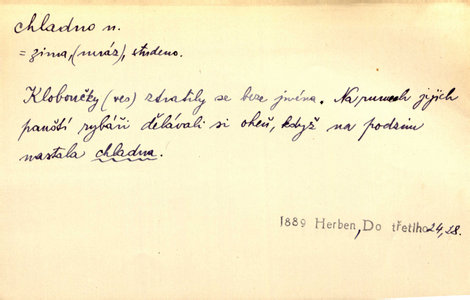 chladno n.
= zima, (mráz), studeno.
Kloboučky (ves) ztratily se beze jména. Na rumech jejich
pamětí rybáři dělávali si oheň, když na podzim
nastala chladna.
1889 Herben, Do třetího 24, 28.